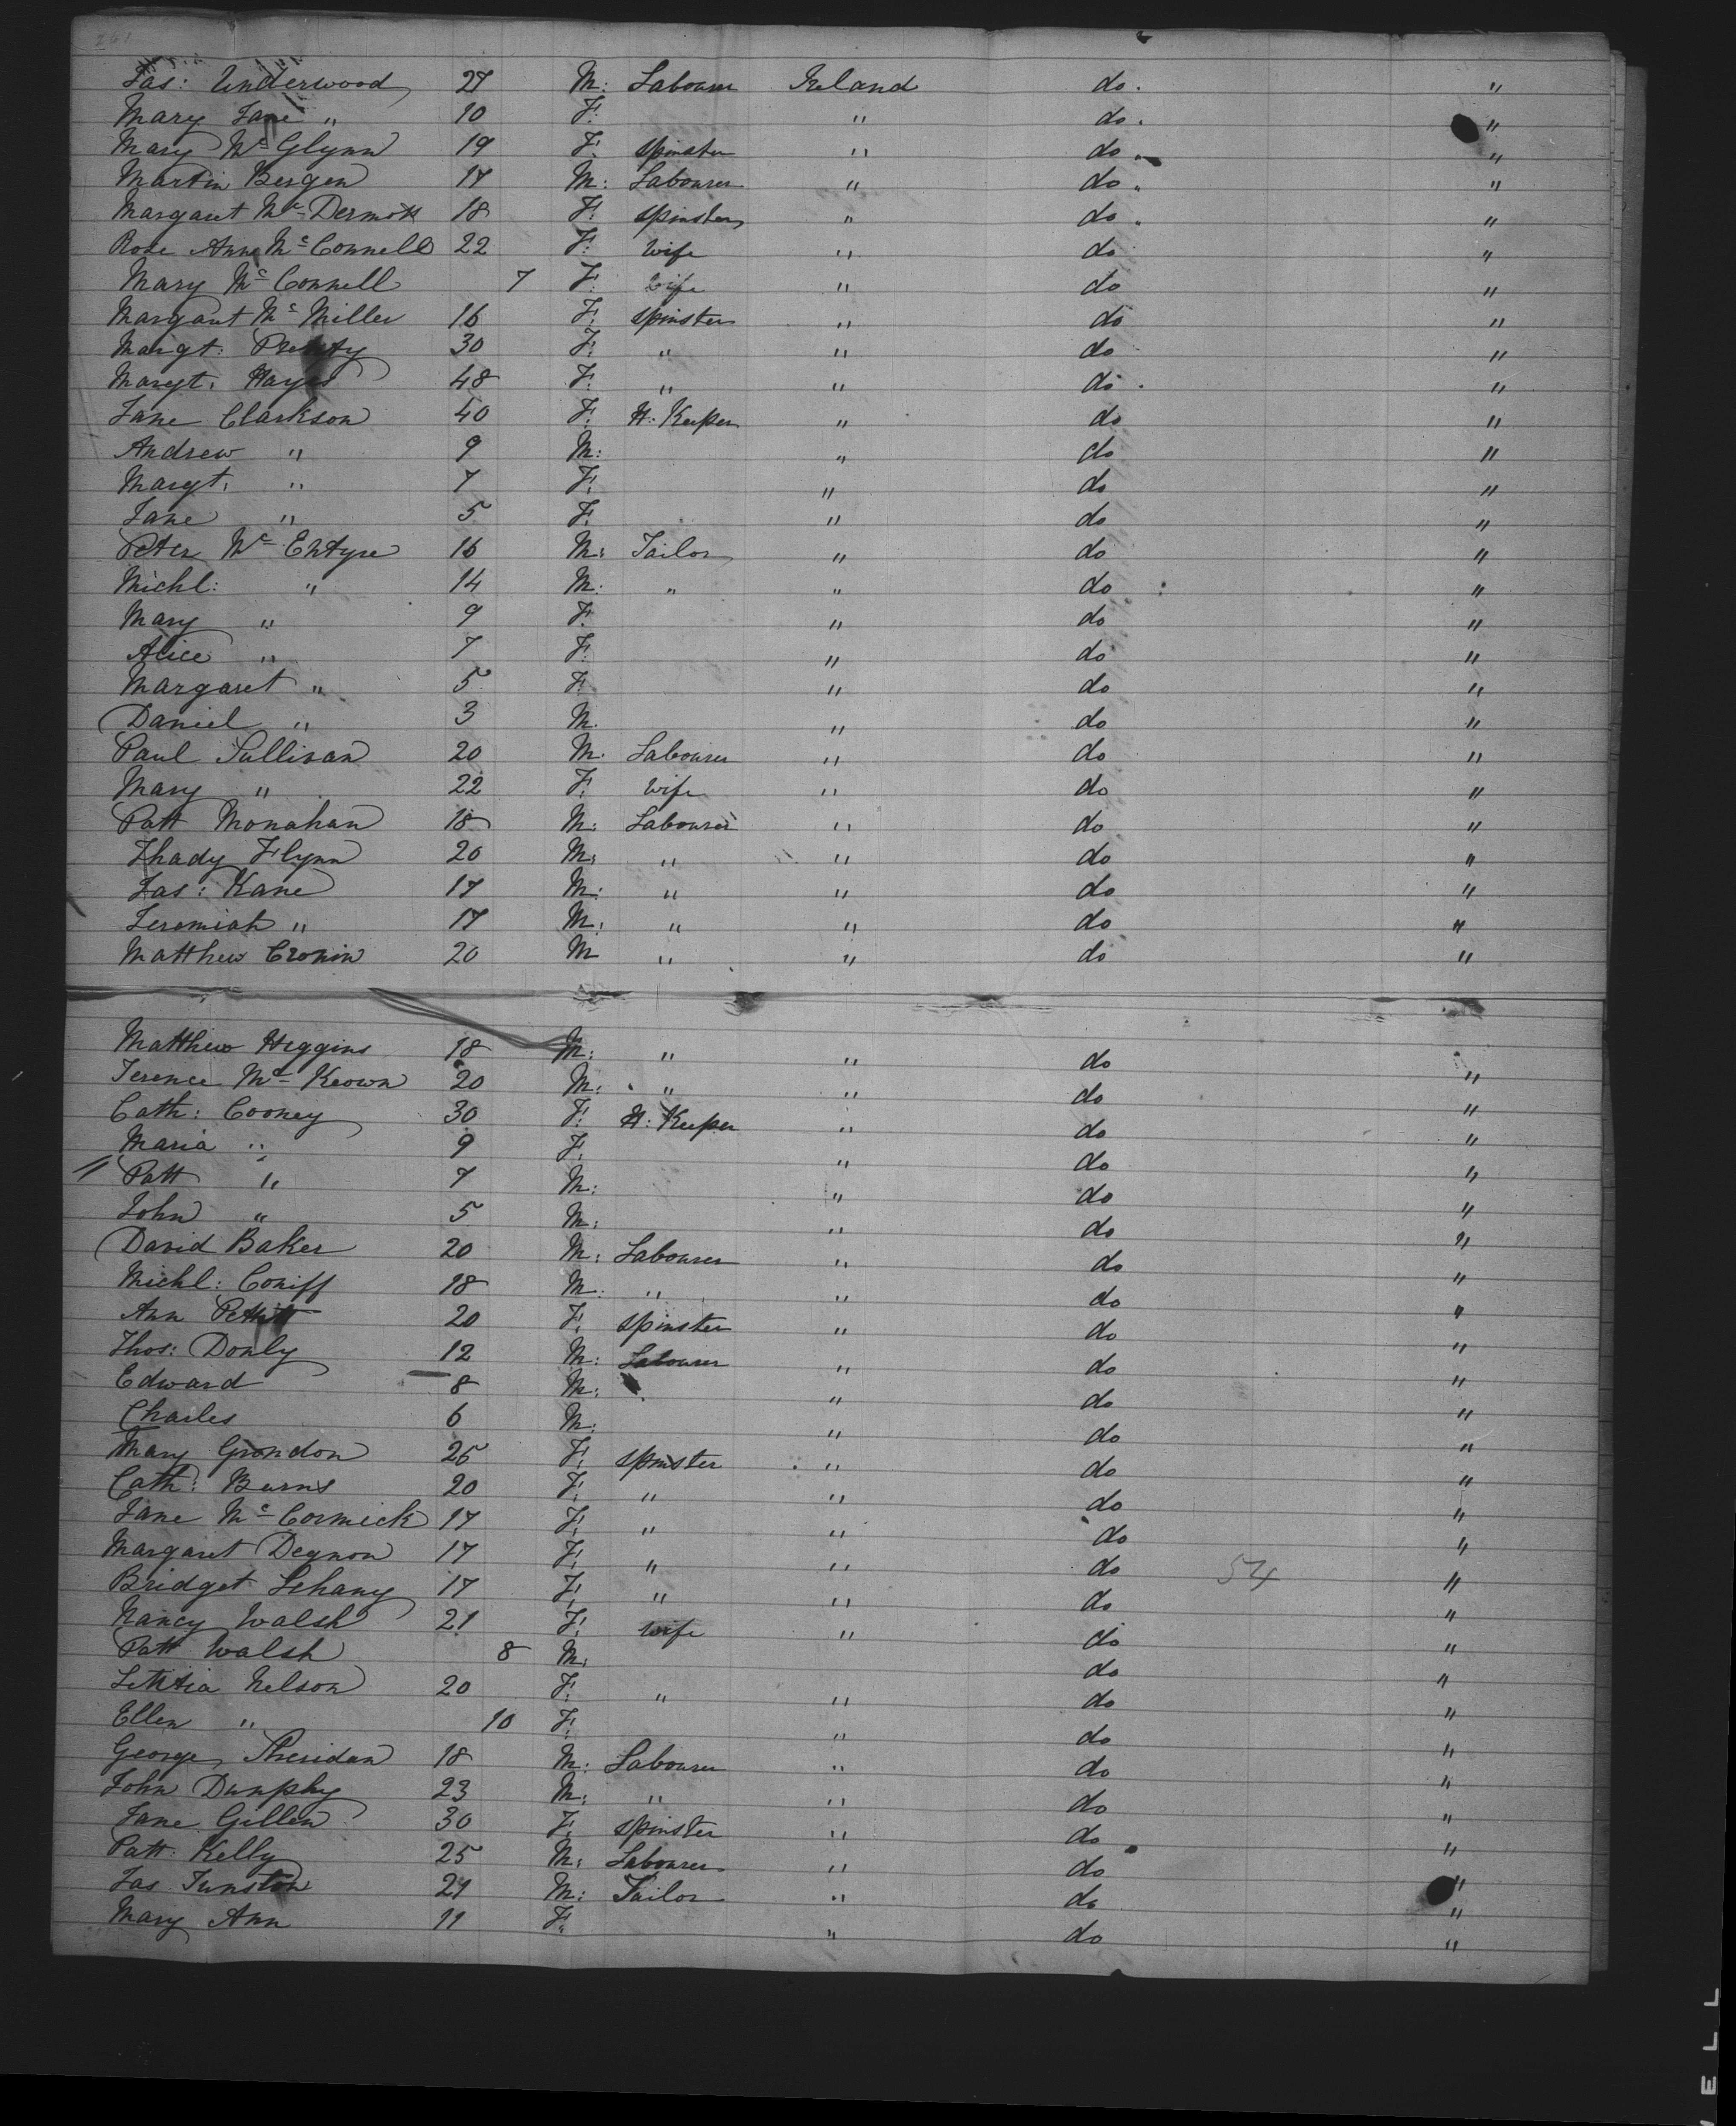 261
Jas: Underwood 27 M: Labourer Ireland do. "
Mary Jane " 10 F: " do. "
Mary Mc Glynn 19 F. Spinster " do. "
Martin Bergen 17 M: Labourer " do. "
Margaret Mc Dermott 18 F: Spinster " do. "
Rose Ann Mc Connell 22 F: Wife " do "
Mary Mc Connell 7 F: Wife " do "
Margaret Mc Miller 16 F. Spinster " do "
Margt: 30 F. " " do "
Margt. Hayes 48 F. " " do. "
Jane Clarkson 40 F. H: Keeper " do "
Andrew " 9 M: " do "
Margt. " 7 F. " do "
Jane " 5 F. " do "
Peter Mc Entyre 16 M: Tailor " do "
Michl: " 14 M: " " do "
Mary " 9 F. " do "
Alice " 7 F. " do "
Margaret " 5 F. " do "
Daniel " 3 M. " do "
Paul Sullivan 20 M. Labourer " do "
Mary " 22 F. Wife " do "
Patt Monahan 18 M: Labourer " do "
Thady Flynn 20 M: " " do "
Jas: Kane 17 M: " " do "
Jeremiah " 17 M: " " do "
Matthew Cronin 20 M " " do "
Matthew Heggins 18 M: " " do "
Terence Mc Keown 20 M: " " do "
Cath: Cooney 30 F. H: Keeper " do "
Maria " 9 F. " do "
Patt " 7 M: " do "
John " 5 M: " do "
David Baker 20 M: Labourer " do "
Michl: Coniff 18 M: " " do "
Ann 20 F. Spinster " do "
Thos: Donly 12 M: Labourer " do "
Edward 8 M: " do "
Charles 6 M: " do "
Mary Grondon 25 F. Spinster " do "
Cath: Burns 20 F. " " do "
Jane Mc Cormick 17 F. " " do "
Margaret Degnon 17 F. " " do 54 "
Bridget Lehany 17 F. " " do "
Nancy Walsh 21 F. Wife " do "
Patt Walsh 8 M. do "
Letitia Nelson 20 F. " " do "
Ellen " 10 F. " do "
George Sheridan 18 M: Labourer " do "
John Dunphy 23 M: " " do "
Jane Gillen 30 F. Spinster " do "
Patt: Kelly 25 M: Labourer " do "
Jas Tunston 21 M: Tailor " do "
Mary Ann 11 F. " do "